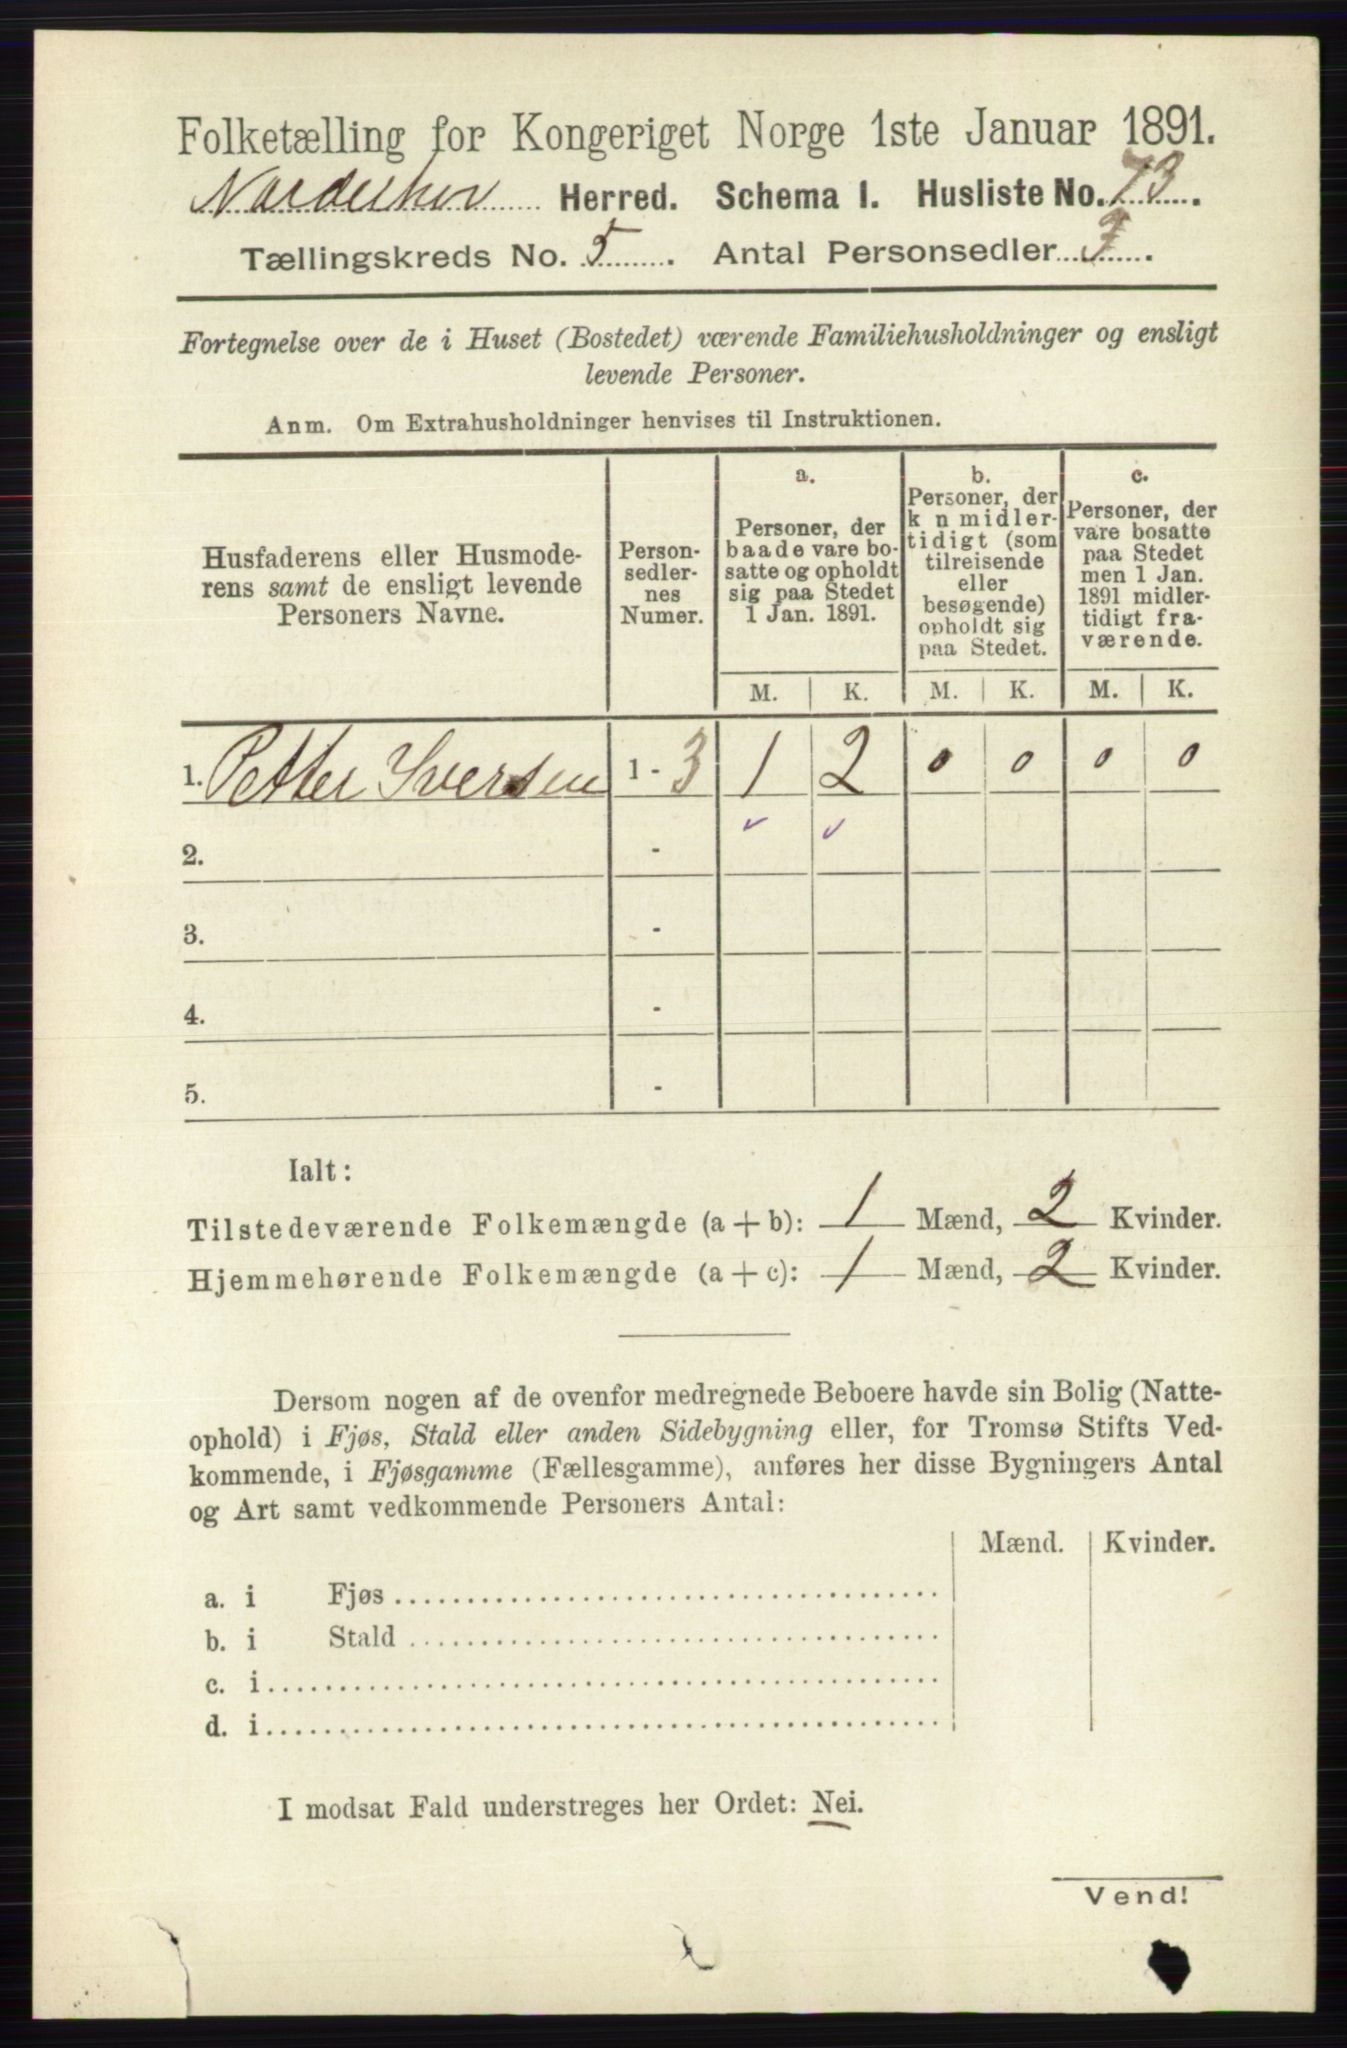 Folketælling for Kongeriget Norge 1ste Januar 1891.
Norderhov Herred. Schema I. Husliste No. 73.
Tællingskreds No. 5. Antal Personsedler 3.
Fortegnelse over de i Huset (Bostedet) værende Familiehusholdninger og ensligt
levende Personer.
Anm. Om Extrahusholdninger henvises til Instruktionen.
Husfaderens eller Husmode-
rens samt de ensligt levende
Personers Navne.
Person-
sedler-
nes
Numer.
a.
Personer, der
baade vare bo-
satte og opholdt
sig paa Stedet
1 Jan. 1891.
b.
Personer, der
k n midler-
tidigt (som
tilreisende
eller
besøgende)
opholdt sig
paa Stedet.
c.
Personer, der
vare bosatte
paa Stedet
men 1 Jan.
1891 midler-
tidigt fra-
værende.
M. K. M. K. M. K.
1. Petter Iversen 1 - 3 1 2 0 0 0 0
2. -
3. -
4. -
5. -
Ialt:
Tilstedeværende Folkemængde (a + b): 1 Mænd, 2 Kvinder.
Hjemmehørende Folkemængde (a + c): 1 Mænd, 2 Kvinder.
Dersom nogen af de ovenfor medregnede Beboere havde sin Bolig (Natte-
ophold) i Fjøs, Stald eller anden Sidebygning eller, for Tromsø Stifts Ved-
kommende, i Fjøsgamme (Fællesgamme), anføres her disse Bygningers Antal
og Art samt vedkommende Personers Antal:
Mænd. Kvinder.
a. i Fjøs
b. i Stald
c. i
d. i
I modsat Fald understreges her Ordet: Nei.
Vend!